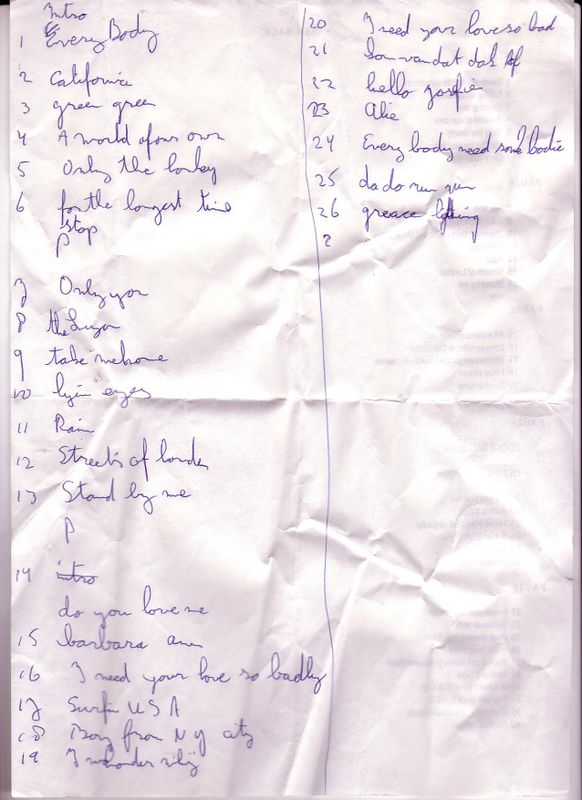 Intro
1 Every Body
2 California
3 green green
4 A world of our own
5 Only the lonley
6 for the longest time
stop
P
7 Only you
8
9 take me home
10 lyin eyes
11 Rain
12 Streets of londen
13 Stand by me
P
14 intro
do you love me
15 barbara ann
16 I need your love so badly
17 Surfin U S A
18 Boy from N Y city
19 I whonder
20 I need your love so bad
21
22 hello
23
24 Every body need some bodie
25 da do run run
26 greace
?